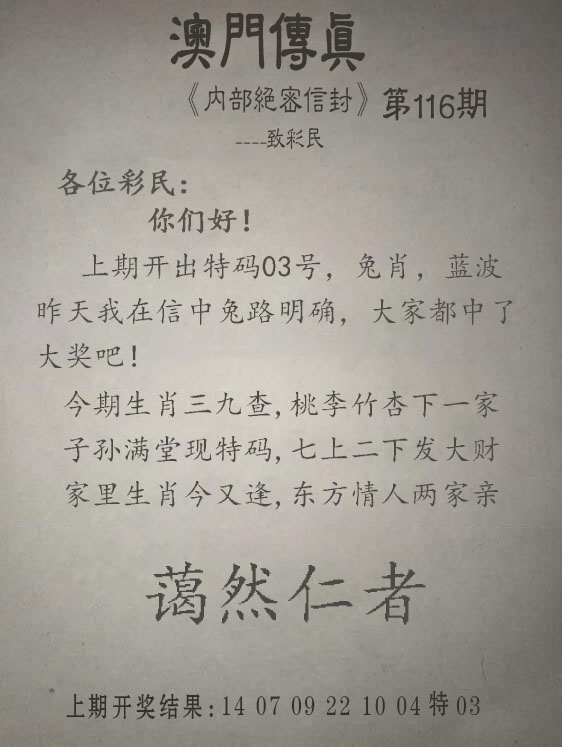 澳門傳眞
《内部絕密信封》第116期
----致彩民
各位彩民:
你们好!
上期开出特码03号，兔肖，蓝波
昨天我在信中兔路明确，大家都中了
大奖吧!
今期生肖三九查,桃李竹杏下一家
子孙满堂现特码,七上二下发大财
家里生肖今又逢,东方情人两家亲
蔼然仁者
上期开奖结果:14 07 09 22 10 04特03